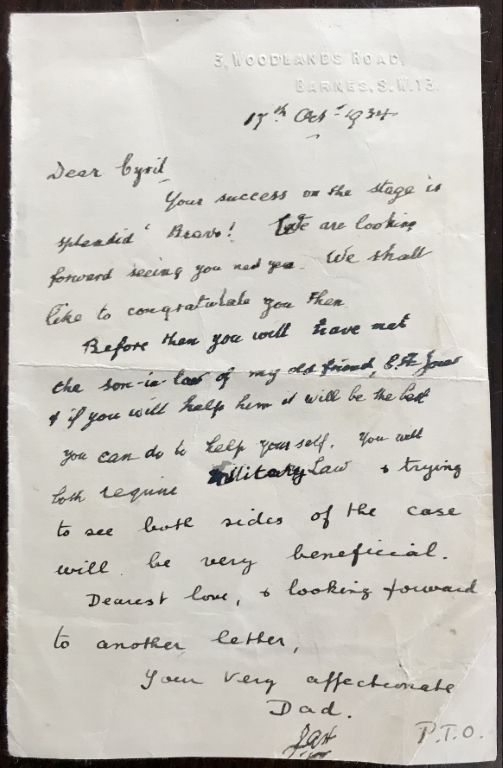 3, WOODLANDS ROAD,
BARNES, S.W.13.
17th Oct 1934
Dear Cyril
Your success on the stage is
splendid Bravo! We are looking
forward seeing you next year. We shall
like to congratulate you then
Before then you will have met
the son-in-law of my old friend,
& if you will help him it will be the best
you can do to help your self. You will
both require Military Law & trying
to see both sides of the case
will be very beneficial.
Dearest love, & looking forward
to another letter,
Your very affectionate
Dad.
P.T.O.